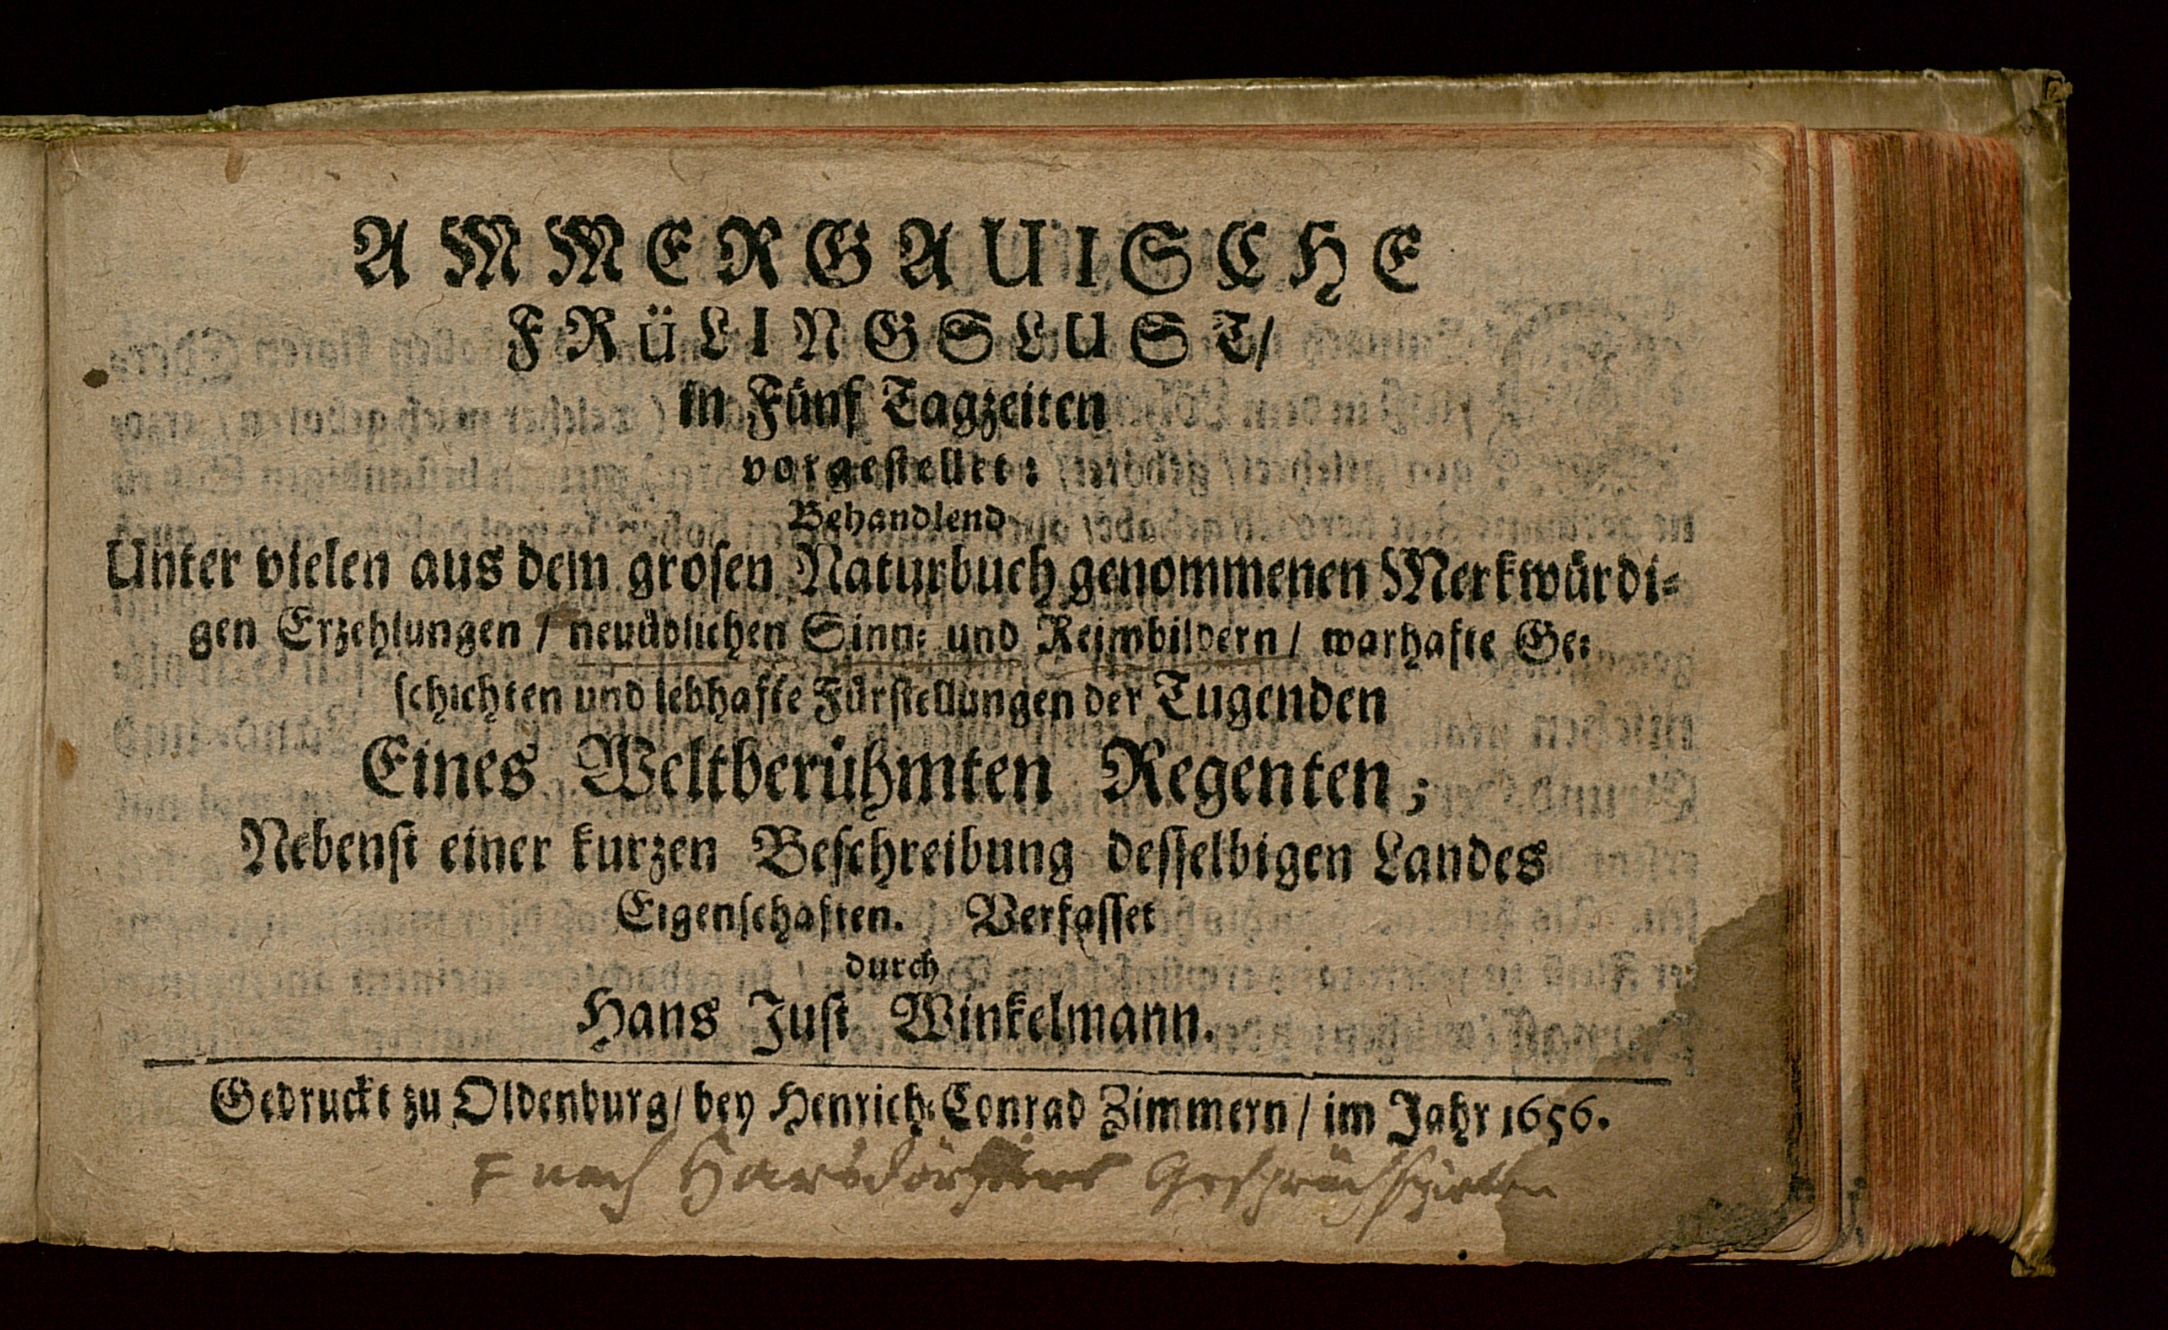 AMMERGAUISCHE
FRüLINGSLUST/
in Fünf Tagzeiten
vorgestellet:
Behandlend
Unter vielen aus dem grosen Naturbuch genommenen Merkwürdi-
gen Erzehlungen / neuüblichen Sinn- und Reimbildern / warhafte Ge-
schichten und lebhafte Fürstellungen der Tugenden
Eines Weltberühmten Regenten;
Nebenst einer kurzen Beschreibung desselbigen Landes
Eigenschaften. Verfasset
durch
Hans Just Winkelmann.
Gedruckt zu Oldenburg/ bey Henrich-Conrad Zimmern / im Jahr 1656.
nach Harsdörffers Gesprächspielen